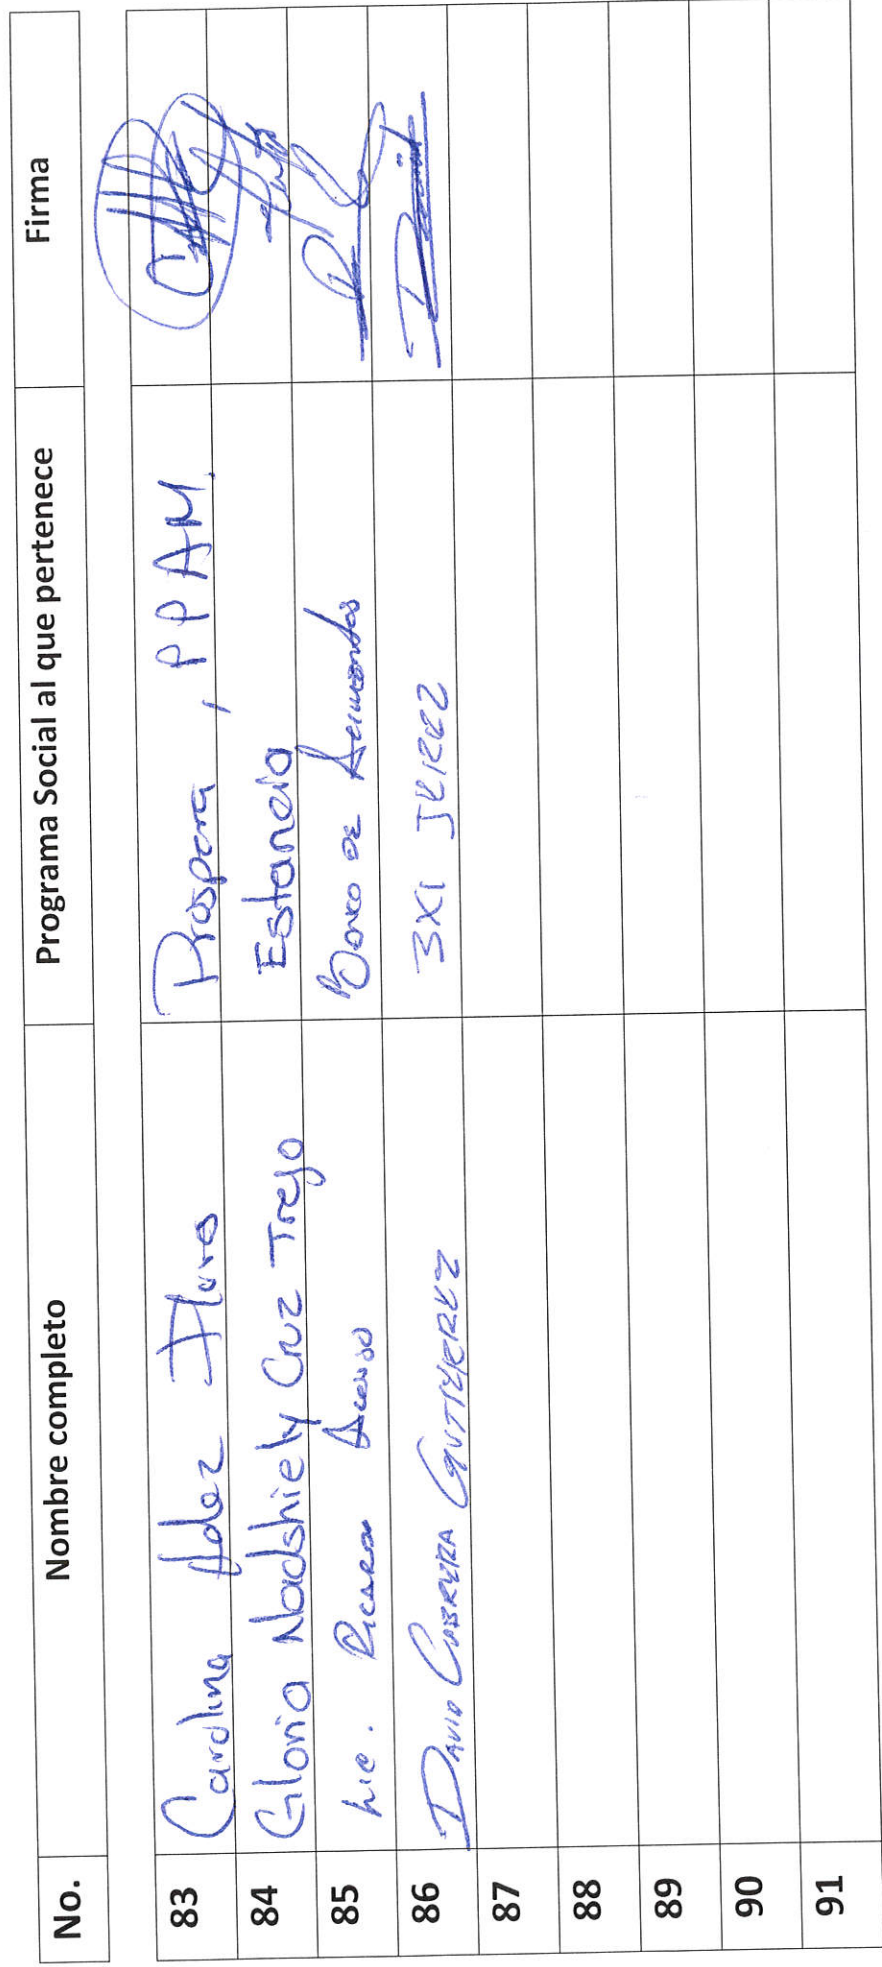 No. Nombre completo Programa Social al que pertenece Firma
83 Carolina Hdez Flores Prospera, PPAM.
84 Gloria Nadshiely Cruz Trejo Estancia
85 Lic. Ricardo Banco de Alimentos
86 David Cabrera Gutierrez 3X1 JEREZ David
87
88
89
90
91